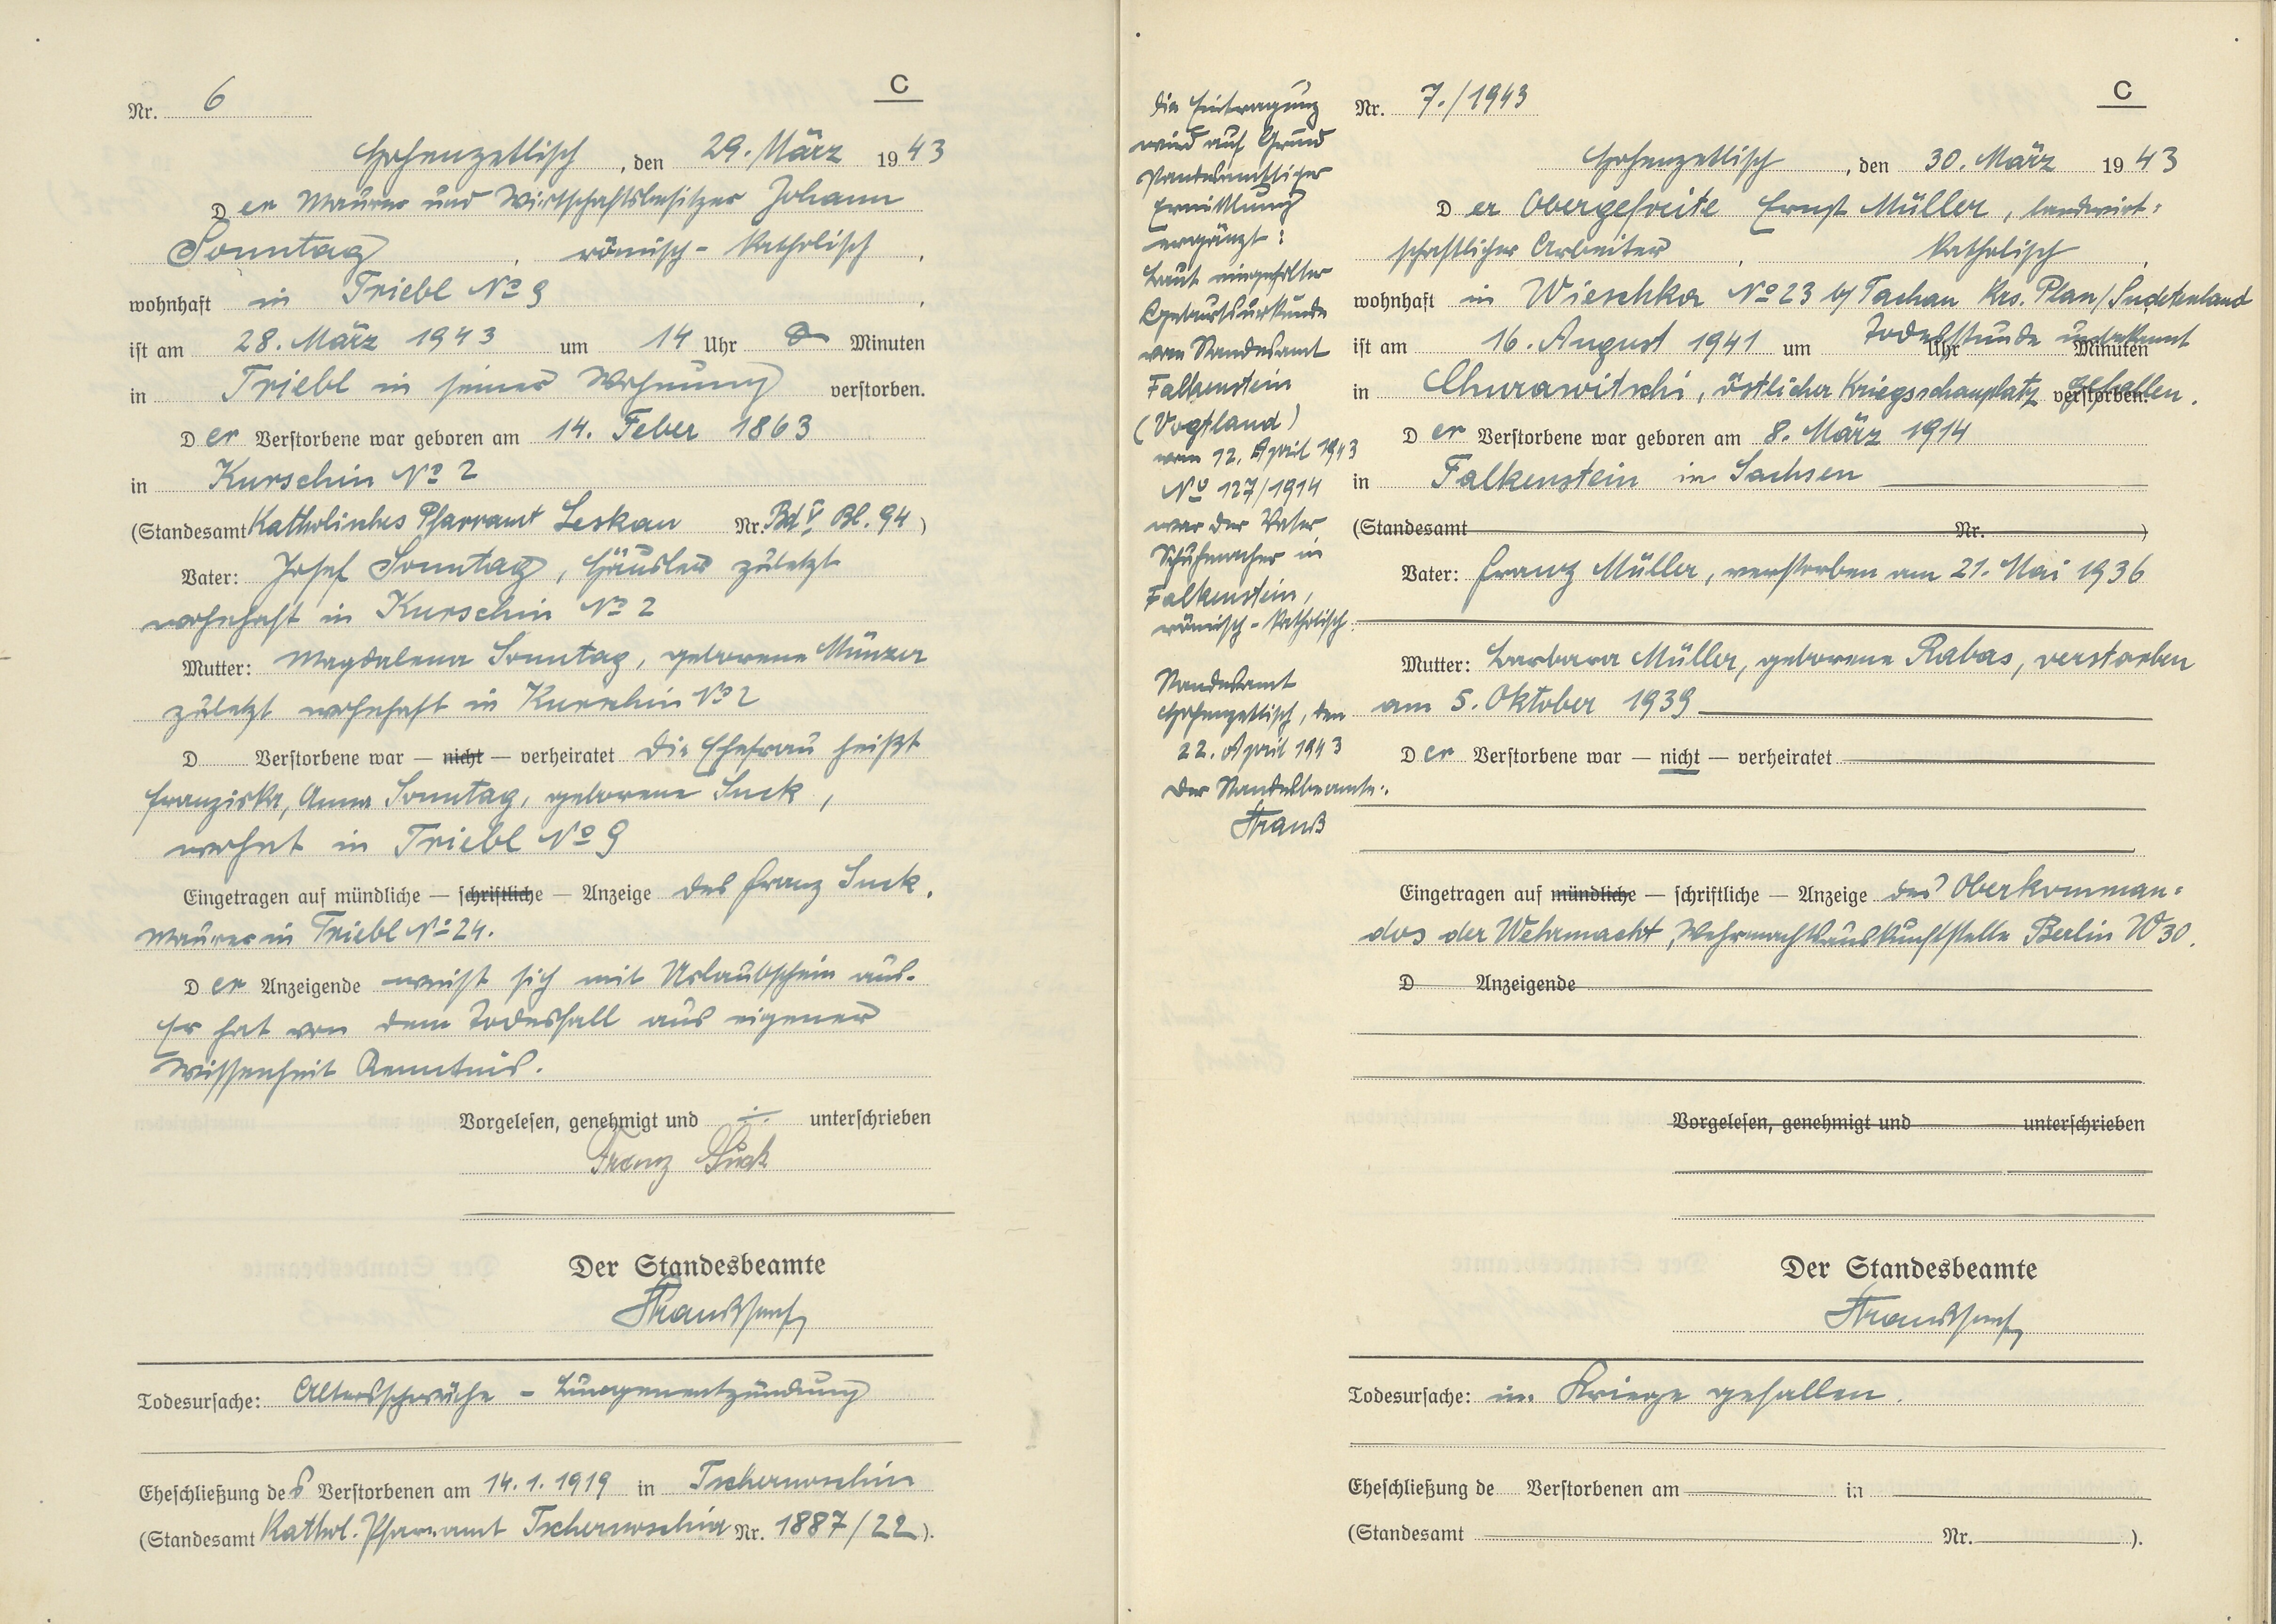 C
Nr. 6
Hohenzetlisch, den 29. März 1943
Der Maurer und Wirtschaftsbesitzer Johann
Sonntag, römisch-katholisch,
wohnhaft in Triebl No 9,
ist am 28. März 1943 um 14 Uhr 0 Minuten
in Triebl in seiner Wohnung verstorben.
Der Verstorbene war geboren am 14. Feber 1863
in Kurschin No 2
(Standesamt Katholisches Pfarramt Leskau Nr. Bd V Bl. 94)
Vater: Josef Sonntag, Häusler zuletzt
wohnhaft in Kurschin No 2
Mutter: Magdalena Sonntag, geborene Münzer
zuletzt wohnhaft in Kurschin No 2
D Verstorbene war — nicht — verheiratet Die Ehefrau heißt
Franziska, Anna Sonntag, geborene Suck,
wohnt in Triebl No 9
Eingetragen auf mündliche — schriftliche — Anzeige des Franz Suck,
Maurer in Triebl No 24.
Der Anzeigende weist sich mit Urlaubschein aus.
Er hat von dem Todesfall aus eigener
Wissenheit Kenntnis.
Vorgelesen, genehmigt und ./. unterschrieben
Franz Suck
Der Standesbeamte
Todesursache: Altersschwäche - Lungenentzündung
Eheschließung des Verstorbenen am 14.1.1919 in Tschernoschin
(Standesamt Kathol. Pfarramt Tschernoschin Nr. 1887/22).
Die Eintragung
wird auf Grund
standesamtlicher
Ermittlung
ergänzt:
Laut eingeholter
Geburtsurkunde
vom Standesamt
Falkenstein
(Vogtland)
vom 12. April 1943
No 127/1914
war der Vater
Schuhmacher in
Falkenstein,
römisch-katholisch.
Standesamt
Hohenzetlisch, den
22. April 1943
Der Standesbeamte:
C
Nr. 7./1943
Hohenzetlisch, den 30. März 1943
Der Obergefreite Ernst Müller, landwirt=
schaftlicher Arbeiter, katholisch,
wohnhaft in Wieschka No 23 b/ Tachau Krs. Plan/Sudetenland
ist am 16. August 1941 um Todesstunde unbekannt Uhr Minuten
in Churawitschi, östlicher Kriegsschauplatz verstorben. gefallen.
Der Verstorbene war geboren am 8. März 1914
in Falkenstein in Sachsen
(Standesamt Nr. )
Vater: Franz Müller, verstorben am 21. Mai 1936
Mutter: Barbara Müller, geborene Rabas, verstorben
am 5. Oktober 1939
Der Verstorbene war — nicht — verheiratet
Eingetragen auf mündliche — schriftliche — Anzeige des Oberkomman=
dos der Wehrmacht, Wehrmachtsauskunftstelle Berlin W 30.
D Anzeigende
Vorgelesen, genehmigt und unterschrieben
Der Standesbeamte
Todesursache: im Kriege gefallen.
Eheschließung de Verstorbenen am in
(Standesamt Nr. ).